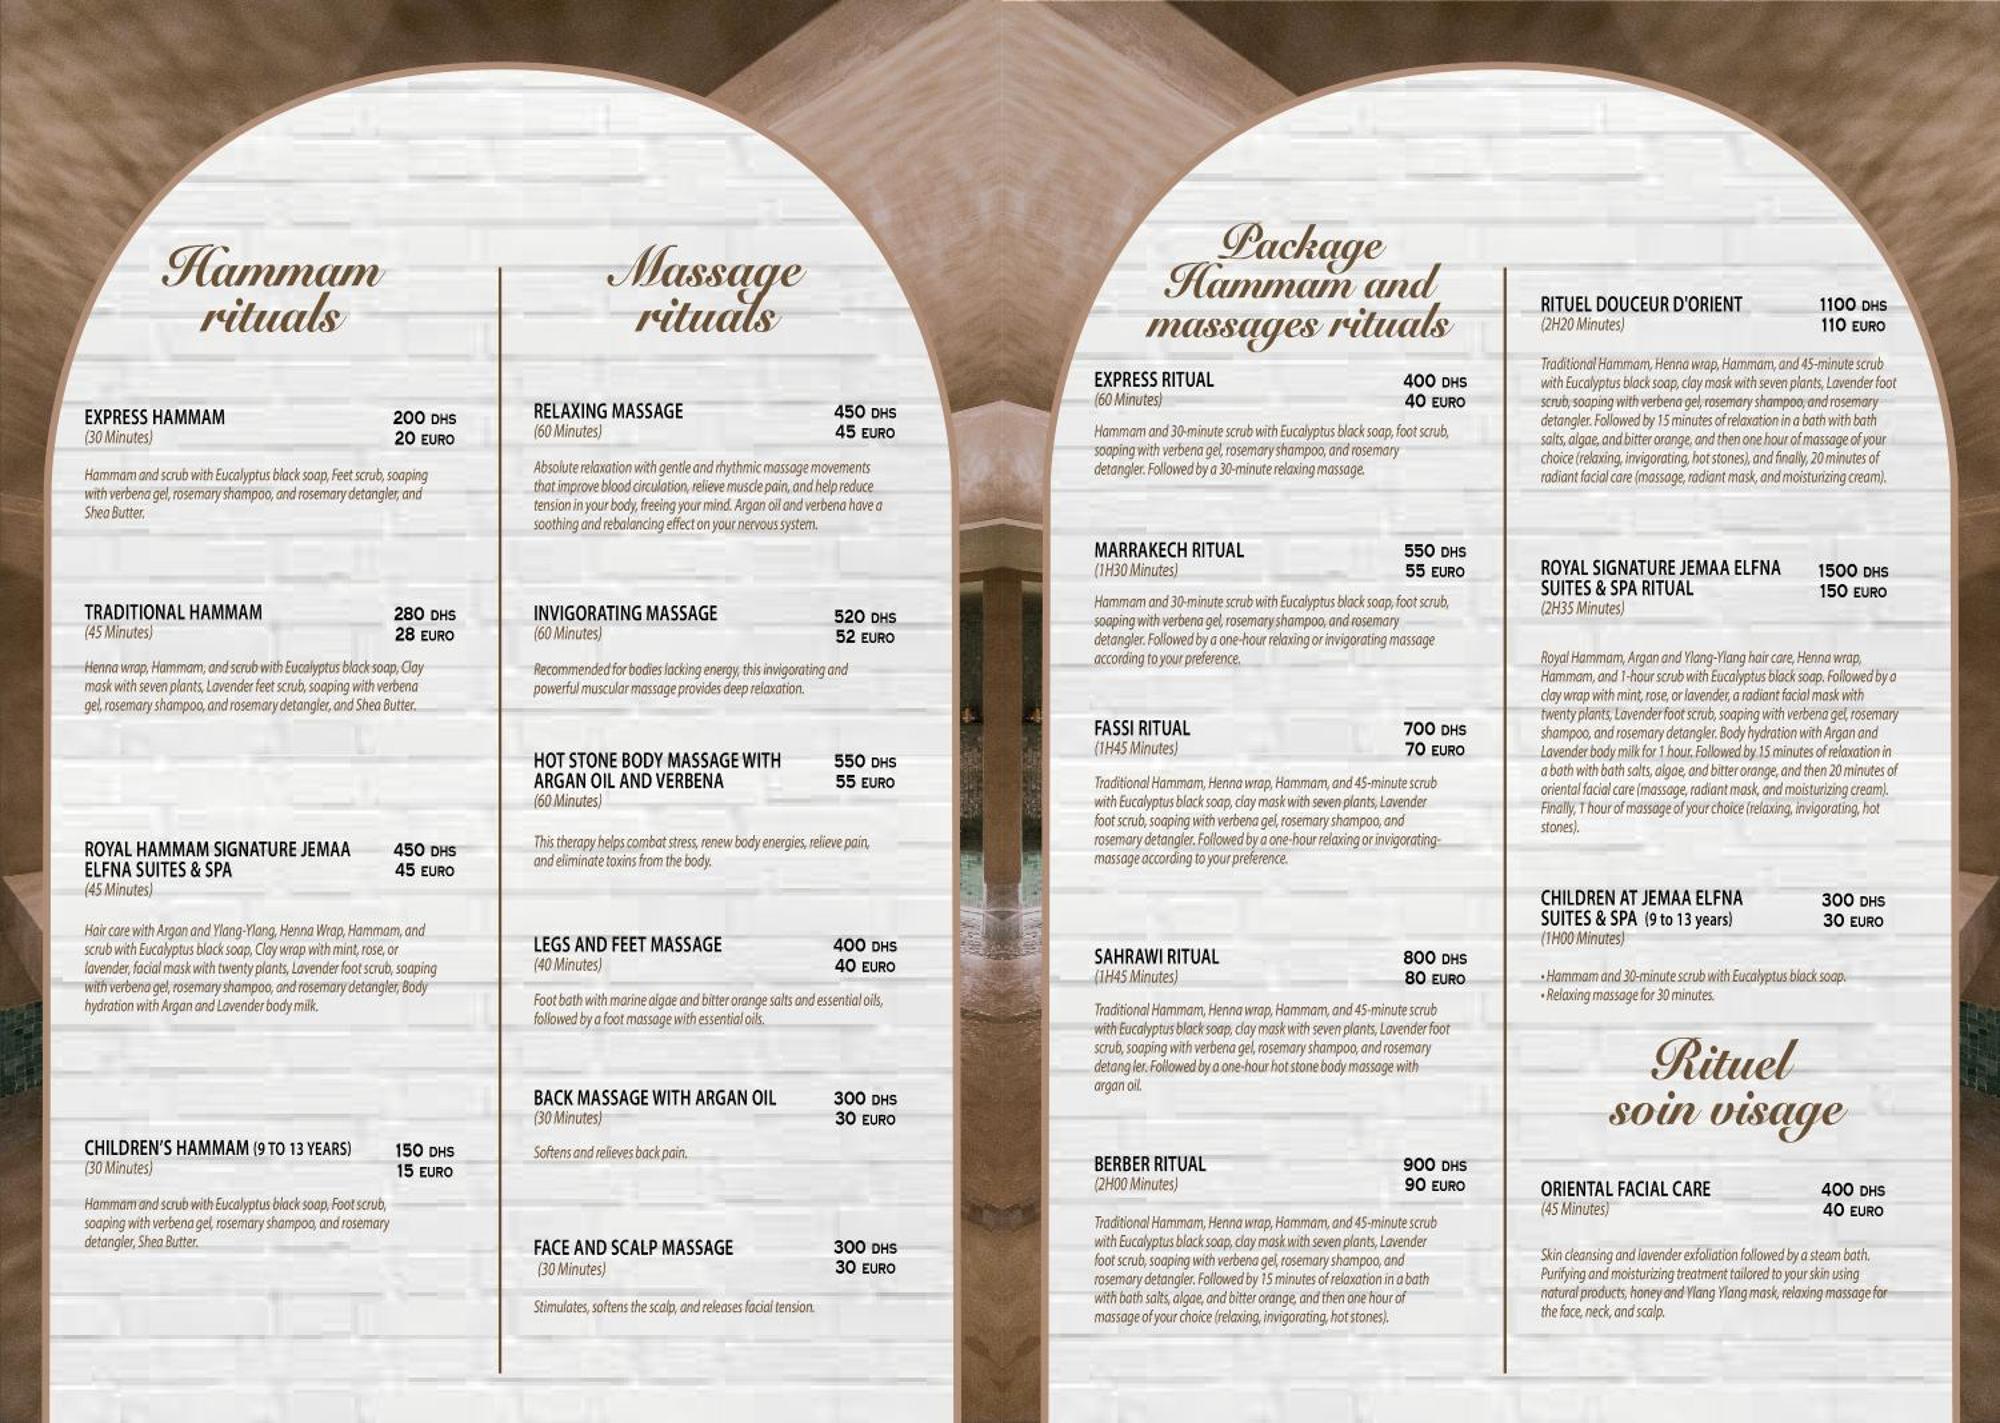 Hammam
rituals
EXPRESS HAMMAM
200 DHS
(30 Minutes)
20 EURO
Hammam and scrub with Eucalyptus black soap, Feet scrub, soaping
with verbena gel, rosemary shampoo, and rosemary detangler, and
Shea Butter.
TRADITIONAL HAMMAM
280 DHS
(45 Minutes)
28 EURO
Henna wrap, Hammam, and scrub with Eucalyptus black soap, Clay
mask with seven plants, Lavender feet scrub, soaping with verbena
gel, rosemary shampoo, and rosemary detangler, and Shea Butter.
ROYAL HAMMAM SIGNATURE JEMAA
450 DHS
ELFNA SUITES & SPA
45 EURO
(45 Minutes)
Hair care with Argan and Ylang-Ylang, Henna Wrap, Hammam, and
scrub with Eucalyptus black soap, Clay wrap with mint, rose, or
lavender, facial mask with twenty plants, Lavender foot scrub, soaping
with verbena gel, rosemary shampoo, and rosemary detangler, Body
hydration with Argan and Lavender body milk.
CHILDREN'S HAMMAM (9 TO 13 YEARS)
150 DHS
(30 Minutes)
15 EURO
Hammam and scrub with Eucalyptus black soap, Foot scrub,
soaping with verbena gel, rosemary shampoo, and rosemary
detangler, Shea Butter.
Massage
rituals
RELAXING MASSAGE
450 DHS
(60 Minutes)
45 EURO
Absolute relaxation with gentle and rhythmic massage movements
that improve blood circulation, relieve muscle pain, and help reduce
tension in your body, freeing your mind. Argan oil and verbena have a
soothing and rebalancing effect on your nervous system.
INVIGORATING MASSAGE
520 DHS
(60 Minutes)
52 EURO
Recommended for bodies lacking energy, this invigorating and
powerful muscular massage provides deep relaxation.
HOT STONE BODY MASSAGE WITH
550 DHS
ARGAN OIL AND VERBENA
55 EURO
(60 Minutes)
This therapy helps combat stress, renew body energies, relieve pain,
and eliminate toxins from the body.
LEGS AND FEET MASSAGE
400 DHS
(40 Minutes)
40 EURO
Foot bath with marine algae and bitter orange salts and essential oils,
followed by a foot massage with essential oils.
BACK MASSAGE WITH ARGAN OIL
300 DHS
(30 Minutes)
30 EURO
Softens and relieves back pain.
FACE AND SCALP MASSAGE
300 DHS
(30 Minutes)
30 EURO
Stimulates, softens the scalp, and releases facial tension.
Package
Hammam and
massages rituals
EXPRESS RITUAL
400 DHS
(60 Minutes)
40 EURO
Hammam and 30-minute scrub with Eucalyptus black soap, foot scrub,
soaping with verbena gel, rosemary shampoo, and rosemary
detangler. Followed by a 30-minute relaxing massage.
MARRAKECH RITUAL
550 DHS
(1H30 Minutes)
55 EURO
Hammam and 30-minute scrub with Eucalyptus black soap, foot scrub,
soaping with verbena gel, rosemary shampoo, and rosemary
detangler. Followed by a one-hour relaxing or invigorating massage
according to your preference.
FASSI RITUAL
700 DHS
(1H45 Minutes)
70 EURO
Traditional Hammam, Henna wrap, Hammam, and 45-minute scrub
with Eucalyptus black soap, clay mask with seven plants, Lavender
foot scrub, soaping with verbena gel, rosemary shampoo, and
rosemary detangler. Followed by a one-hour relaxing or invigorating-
massage according to your preference.
SAHRAWI RITUAL
800 DHS
(1H45 Minutes)
80 EURO
Traditional Hammam, Henna wrap, Hammam, and 45-minute scrub
with Eucalyptus black soap, clay mask with seven plants, Lavender foot
scrub, soaping with verbena gel, rosemary shampoo, and rosemary
detang ler. Followed by a one-hour hot stone body massage with
argan oil.
BERBER RITUAL
900 DHS
(2H00 Minutes)
90 EURO
Traditional Hammam, Henna wrap, Hammam, and 45-minute scrub
with Eucalyptus black soap, clay mask with seven plants, Lavender
foot scrub, soaping with verbena gel, rosemary shampoo, and
rosemary detangler. Followed by 15 minutes of relaxation in a bath
with bath salts, algae, and bitter orange, and then one hour of
massage of your choice (relaxing, invigorating, hot stones).
RITUEL DOUCEUR D'ORIENT
1100 DHS
(2H20 Minutes)
110 EURO
Traditional Hammam, Henna wrap, Hammam, and 45-minute scrub
with Eucalyptus black soap, clay mask with seven plants, Lavender foot
scrub, soaping with verbena gel, rosemary shampoo, and rosemary
detangler. Followed by 15 minutes of relaxation in a bath with bath
salts, algae, and bitter orange, and then one hour of massage of your
choice (relaxing, invigorating, hot stones), and finally, 20 minutes of
radiant facial care (massage, radiant mask, and moisturizing cream).
ROYAL SIGNATURE JEMAA ELFNA
1500 DHS
SUITES & SPA RITUAL
150 EURO
(2H35 Minutes)
Royal Hammam, Argan and Ylang-Ylang hair care, Henna wrap,
Hammam, and 1-hour scrub with Eucalyptus black soap. Followed by a
clay wrap with mint, rose, or lavender, a radiant facial mask with
twenty plants, Lavender foot scrub, soaping with verbena gel, rosemary
shampoo, and rosemary detangler. Body hydration with Argan and
Lavender body milk for 1 hour. Followed by 15 minutes of relaxation in
a bath with bath salts, algae, and bitter orange, and then 20 minutes of
oriental facial care (massage, radiant mask, and moisturizing cream).
Finally, 1 hour of massage of your choice (relaxing, invigorating, hot
stones).
CHILDREN AT JEMAA ELFNA
300 DHS
SUITES & SPA (9 to 13 years)
30 EURO
(1H00 Minutes)
• Hammam and 30-minute scrub with Eucalyptus black soap.
• Relaxing massage for 30 minutes.
Rituel
soin visage
ORIENTAL FACIAL CARE
400 DHS
(45 Minutes)
40 EURO
Skin cleansing and lavender exfoliation followed by a steam bath.
Purifying and moisturizing treatment tailored to your skin using
natural products, honey and Ylang Ylang mask, relaxing massage for
the face, neck, and scalp.